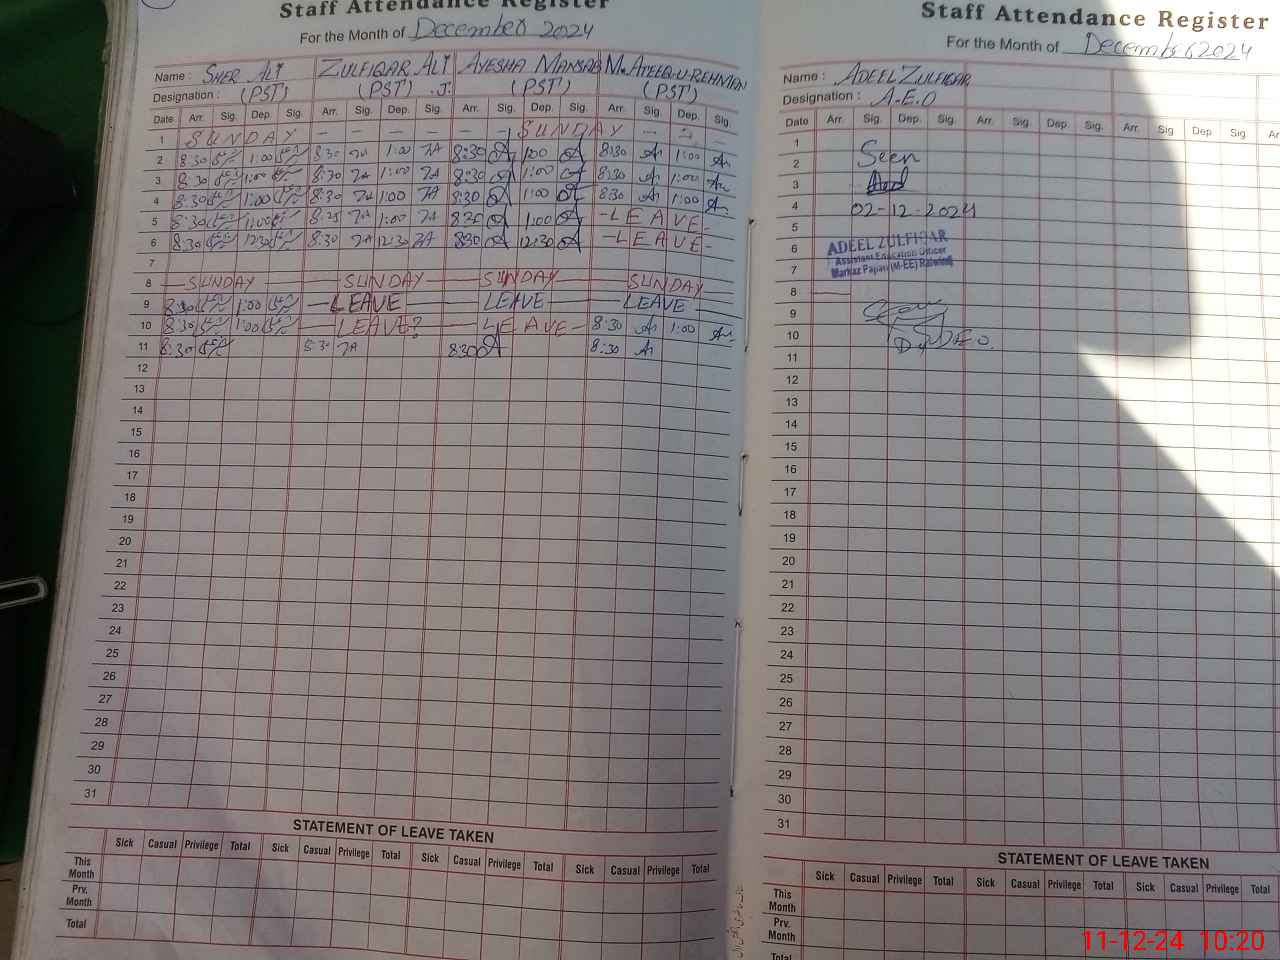 Staff Attendance Register
For the Month of December 2024
Name : SHER ALI ZULFIQAR ALI AYESHA MANSAB M. ATEEQ-U-REHMAN
Designation : (PST) (PST) (PST) (PST)
Date Arr. Sig. Dep. Sig. Arr. Sig. Dep. Sig. Arr. Sig. Dep. Sig. Arr. Sig. Dep. Sig.
1 SUNDAY — — — — — — SUNDAY — — —
2 8:30 1:00 8:30 ZA 1:00 ZA 8:30 A 1:00 A 8:30 Ar 1:00 Ar
3 8:30 1:00 8:30 ZA 1:00 ZA 8:30 A 1:00 A 8:30 Ar 1:00 Ar
4 8:30 1:00 8:30 ZA 1:00 ZA 8:30 A 1:00 A 8:30 Ar 1:00 Ar
5 8:30 1:00 8:25 ZA 1:00 ZA 8:30 A 1:00 A -LEAVE-
6 8:30 12:30 8:30 ZA 12:30 ZA 8:30 A 12:30 A -LEAVE-
7
8 —SUNDAY— SUNDAY —SUNDAY— SUNDAY
9 8:30 1:00 —LEAVE— LEAVE— LEAVE
10 8:30 1:00 —LEAVE? —LEAVE- 8:30 Ar 1:00 Ar
11 8:30 8:30 ZA 8:30 A 8:30 Ar
12
13
14
15
16
17
18
19
20
21
22
23
24
25
26
27
28
29
30
31
STATEMENT OF LEAVE TAKEN
Sick Casual Privilege Total Sick Casual Privilege Total Sick Casual Privilege Total Sick Casual Privilege Total
This Month
Prv. Month
Total
Staff Attendance Register
For the Month of December 2024
Name : ADEEL ZULFIQAR
Designation : A.E.O
Date Arr. Sig. Dep. Sig. Arr. Sig. Dep. Sig. Arr. Sig Dep Sig. A
1
2 Seen
3
4 02-12-2024
5
6 ADEEL ZULFIQAR
Assistant Education Officer
7 Markaz Papan (M-EE) Raiwind
8
9
10
11
12
13
14
15
16
17
18
19
20
21
22
23
24
25
26
27
28
29
30
31
STATEMENT OF LEAVE TAKEN
Sick Casual Privilege Total Sick Casual Privilege Total Sick Casual Privilege Total
This Month
Prv. Month
Total
11-12-24 10:20